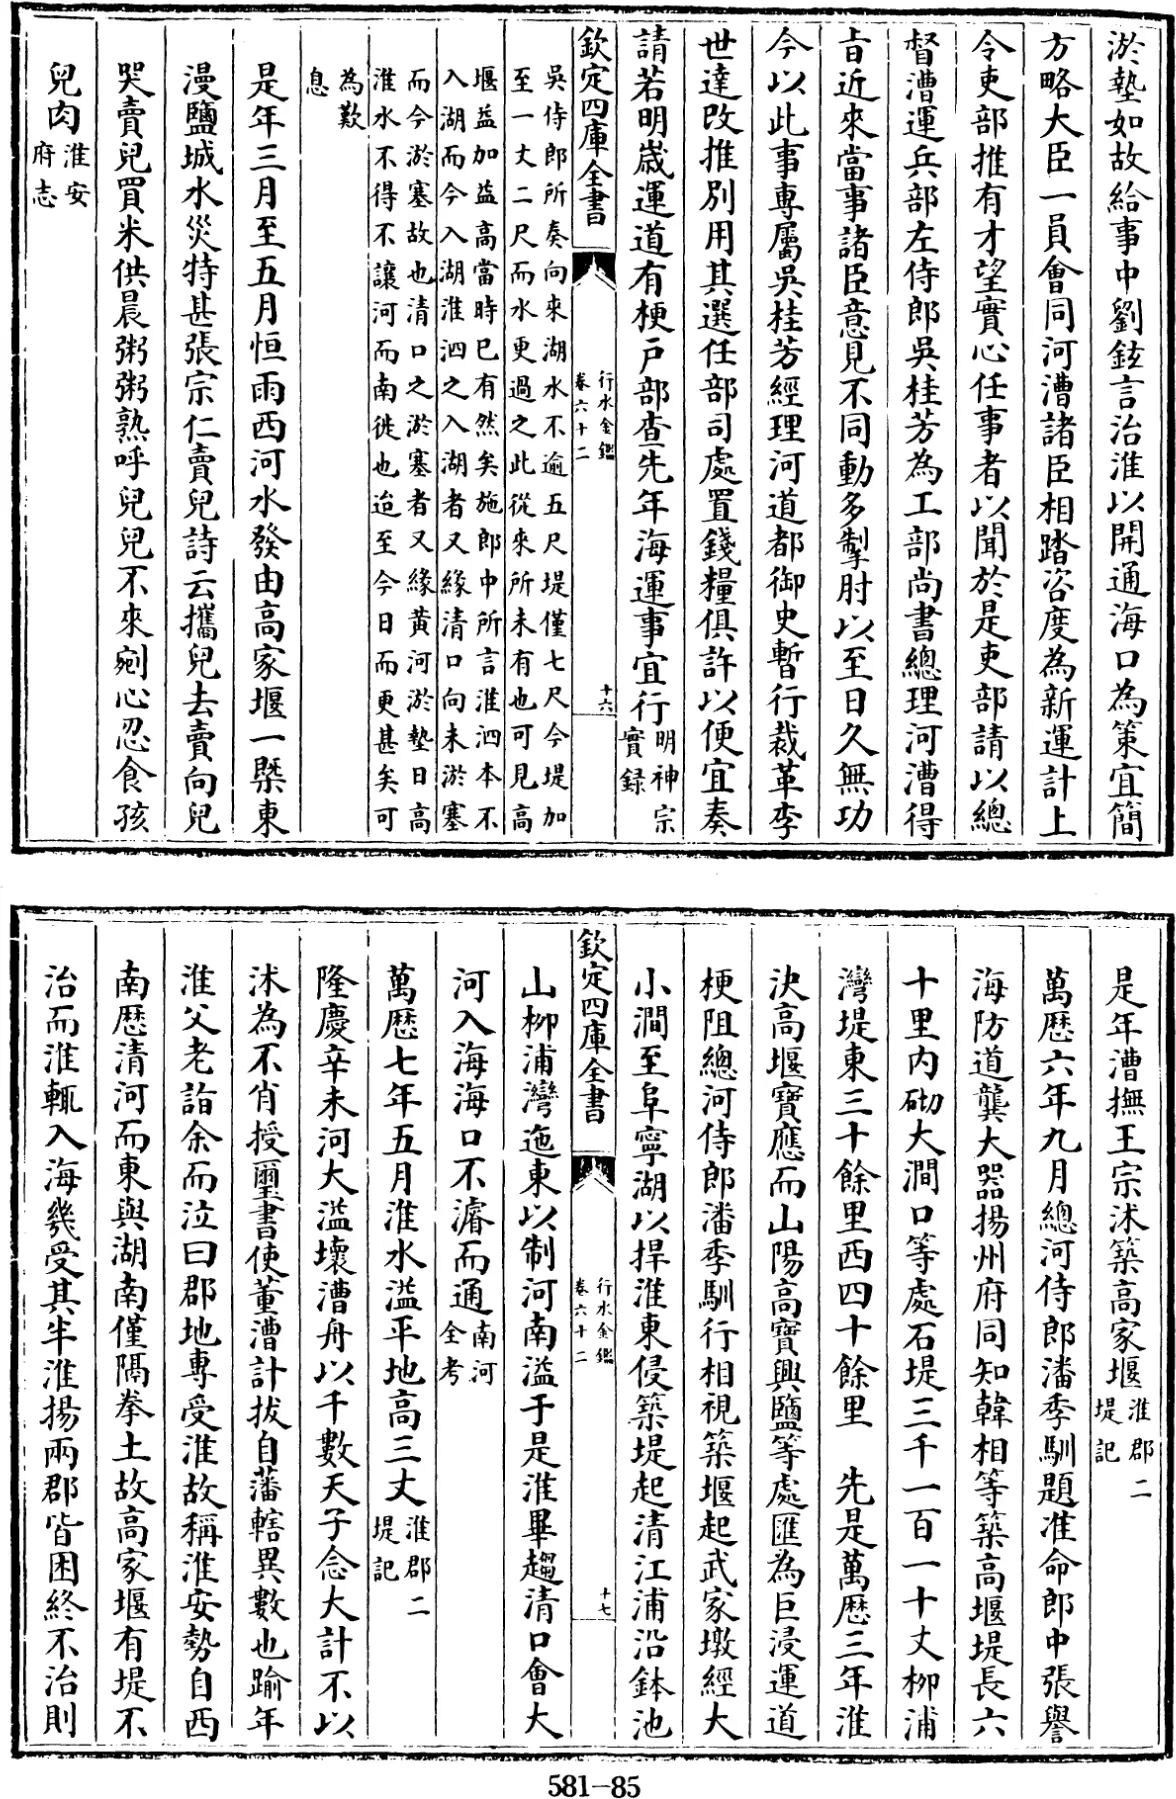 淤墊如故給事中劉鉉言治淮以開通海口為策宜簡
方略大臣一員會同河漕諸臣相踏咨度為新運計上
令吏部推有才望實心任事者以聞於是吏部請以總
督漕運兵部左侍郎吳桂芳為工部尚書總理河漕得
㫖近來當事諸臣意見不同動多掣肘以至日久無功
今以此事專屬吳桂芳經理河道都御史暫行裁革李
世達改推別用其選任部司處置錢糧俱許以便宜奏
請若明歲運道有梗户部查先年海運事宜行明神宗實録
欽定四庫全書
行水金鑑
卷六十二
十六
吳侍郎所奏向來湖水不逾五尺堤僅七尺今堤加
至一丈二尺而水更過之此從來所未有也可見高
堰益加益高當時已有然矣施郎中所言淮泗本不
入湖而今入湖淮泗之入湖者又緣清口向未淤塞
而今淤塞故也清口之淤塞者又緣黄河淤墊日高
淮水不得不讓河而南徙也迨至今日而更甚矣可
為歎
息
是年三月至五月恒雨西河水發由高家堰一槩東
漫鹽城水災特甚張宗仁賣兒詩云攜兒去賣向兒
哭賣兒買米供晨粥粥熟呼兒兒不來剜心忍食孩
兒肉淮安府志
是年漕撫王宗沐築高家堰淮郡二堤記
萬歷六年九月總河侍郎潘季馴題准命郎中張譽
海防道龔大器揚州府同知韓相等築高堰堤長六
十里内砌大澗口等處石堤三千一百一十丈柳浦
灣堤東三十餘里西四十餘里　先是萬歷三年淮
決高堰寶應而山陽高寶興鹽等處匯為巨浸運道
梗阻總河侍郎潘季馴行相視築堰起武家墩經大
小澗至阜寧湖以捍淮東侵築堤起清江浦沿鉢池
欽定四庫全書
行水金鑑
卷六十二
十七
山柳浦灣迤東以制河南溢于是淮畢趨清口會大
河入海海口不濬而通南河全考
萬歷七年五月淮水溢平地高三丈淮郡二堤記
隆慶辛未河大溢壞漕舟以千數天子念大計不以
沭為不肖授璽書使董漕計拔自藩轄異數也踰年
淮父老詣余而泣曰郡地專受淮故稱淮安勢自西
南歷清河而東與湖南僅隔拳土故高家堰有堤不
治而淮輒入海幾受其半淮揚兩郡皆困終不治則
581-85